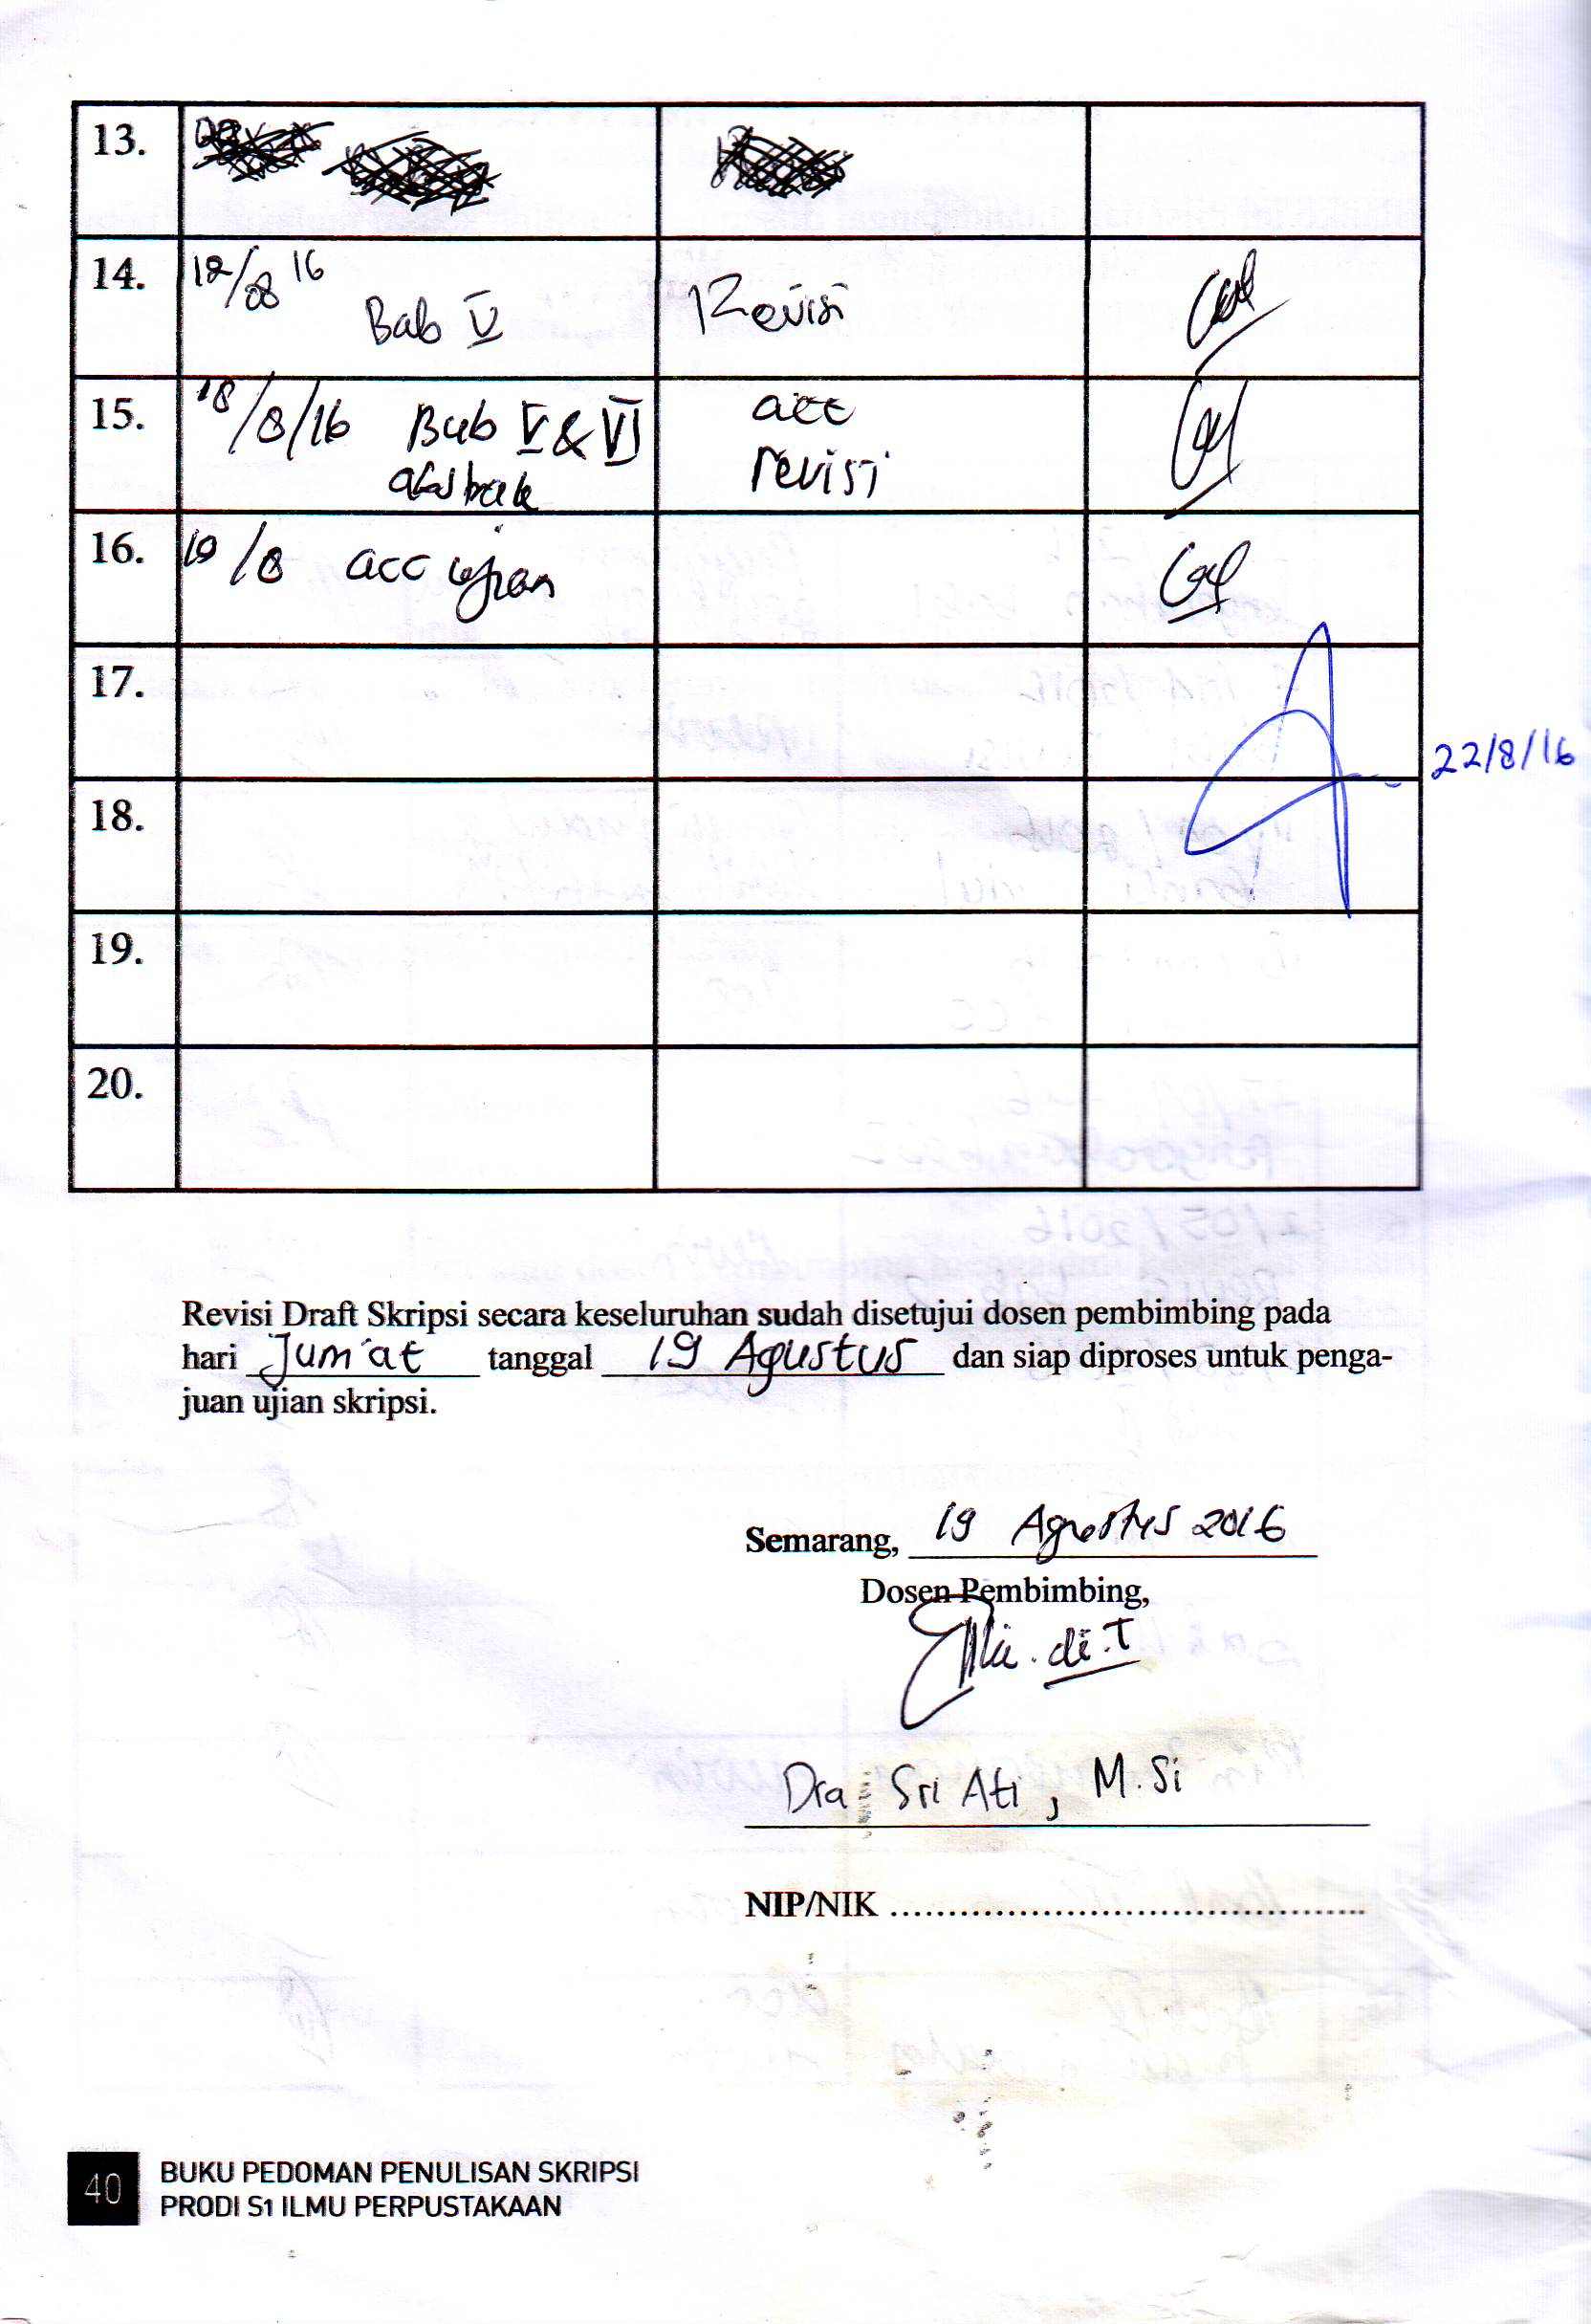 13.
14. 12/08 16 Bab V Revisi
15. 18/8/16 Bab V & VI acc
abstrak revisi
16. 19/8 acc ujian
17.
22/8/16
18.
19.
20.
Revisi Draft Skripsi secara keseluruhan sudah disetujui dosen pembimbing pada
hari Jum'at tanggal 19 Agustus dan siap diproses untuk penga-
juan ujian skripsi.
Semarang, 19 Agustus 2016
Dosen Pembimbing,
Dra Sri Ati, M.Si
NIP/NIK ..........................................
40 BUKU PEDOMAN PENULISAN SKRIPSI
PRODI S1 ILMU PERPUSTAKAAN